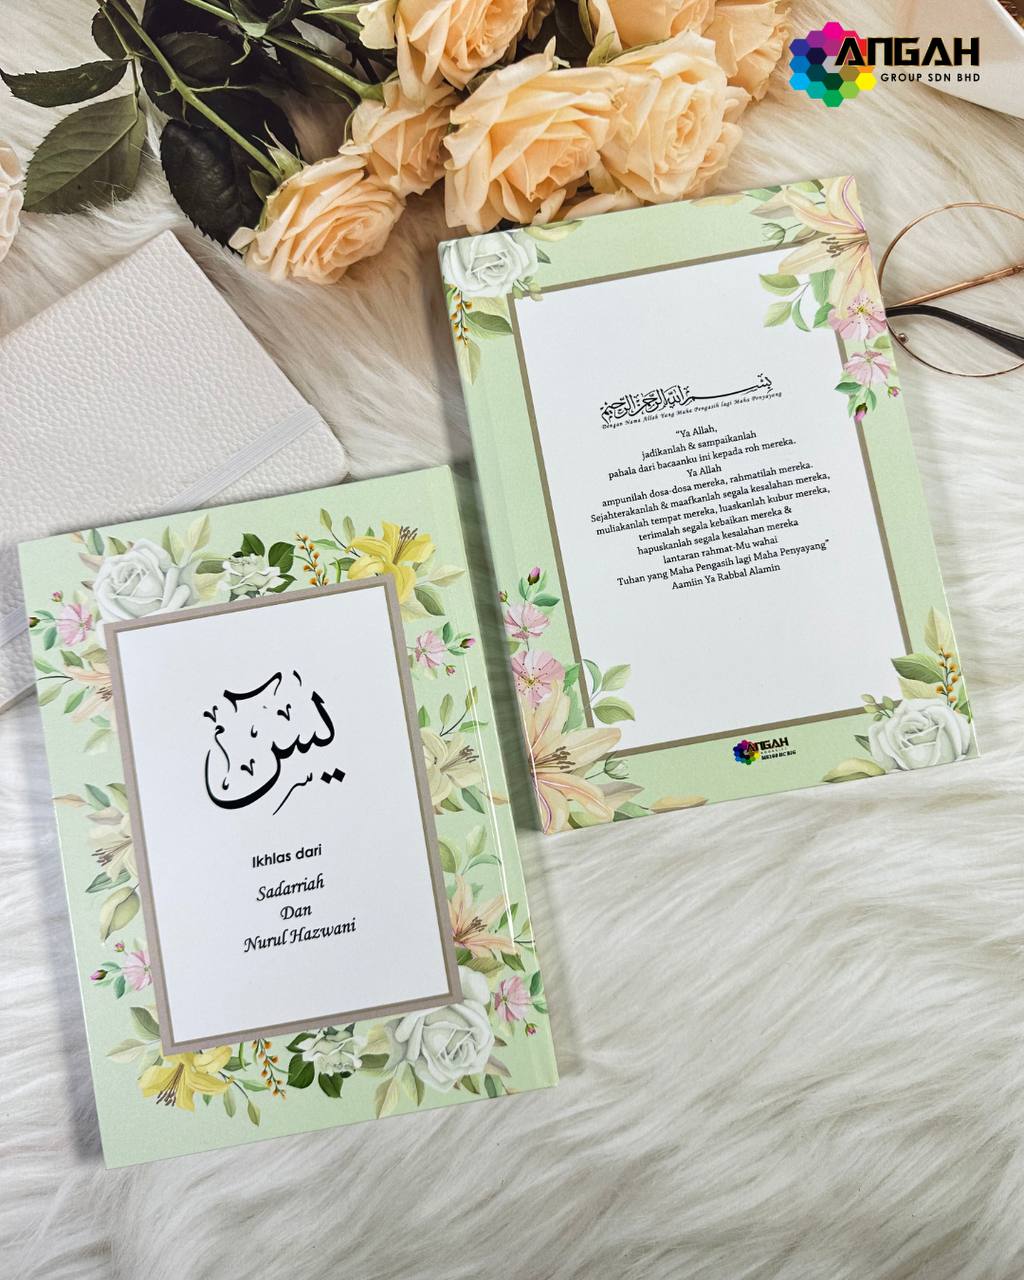 ANGAH
GROUP SDN BHD
بِسْمِ اللَّهِ الرَّحْمَنِ الرَّحِيمِ
Dengan Nama Allah Yang Maha Pengasih lagi Maha Penyayang
“Ya Allah,
jadikanlah & sampaikanlah
pahala dari bacaanku ini kepada roh mereka.
Ya Allah
ampunilah dosa-dosa mereka, rahmatilah mereka.
Sejahterakanlah & maafkanlah segala kesalahan mereka,
muliakanlah tempat mereka, luaskanlah kubur mereka,
terimalah segala kebaikan mereka &
hapuskanlah segala kesalahan mereka
lantaran rahmat-Mu wahai
Tuhan yang Maha Pengasih lagi Maha Penyayang”
Aamiin Ya Rabbal Alamin
ANGAH
يس
Ikhlas dari
Sadarriah
Dan
Nurul Hazwani